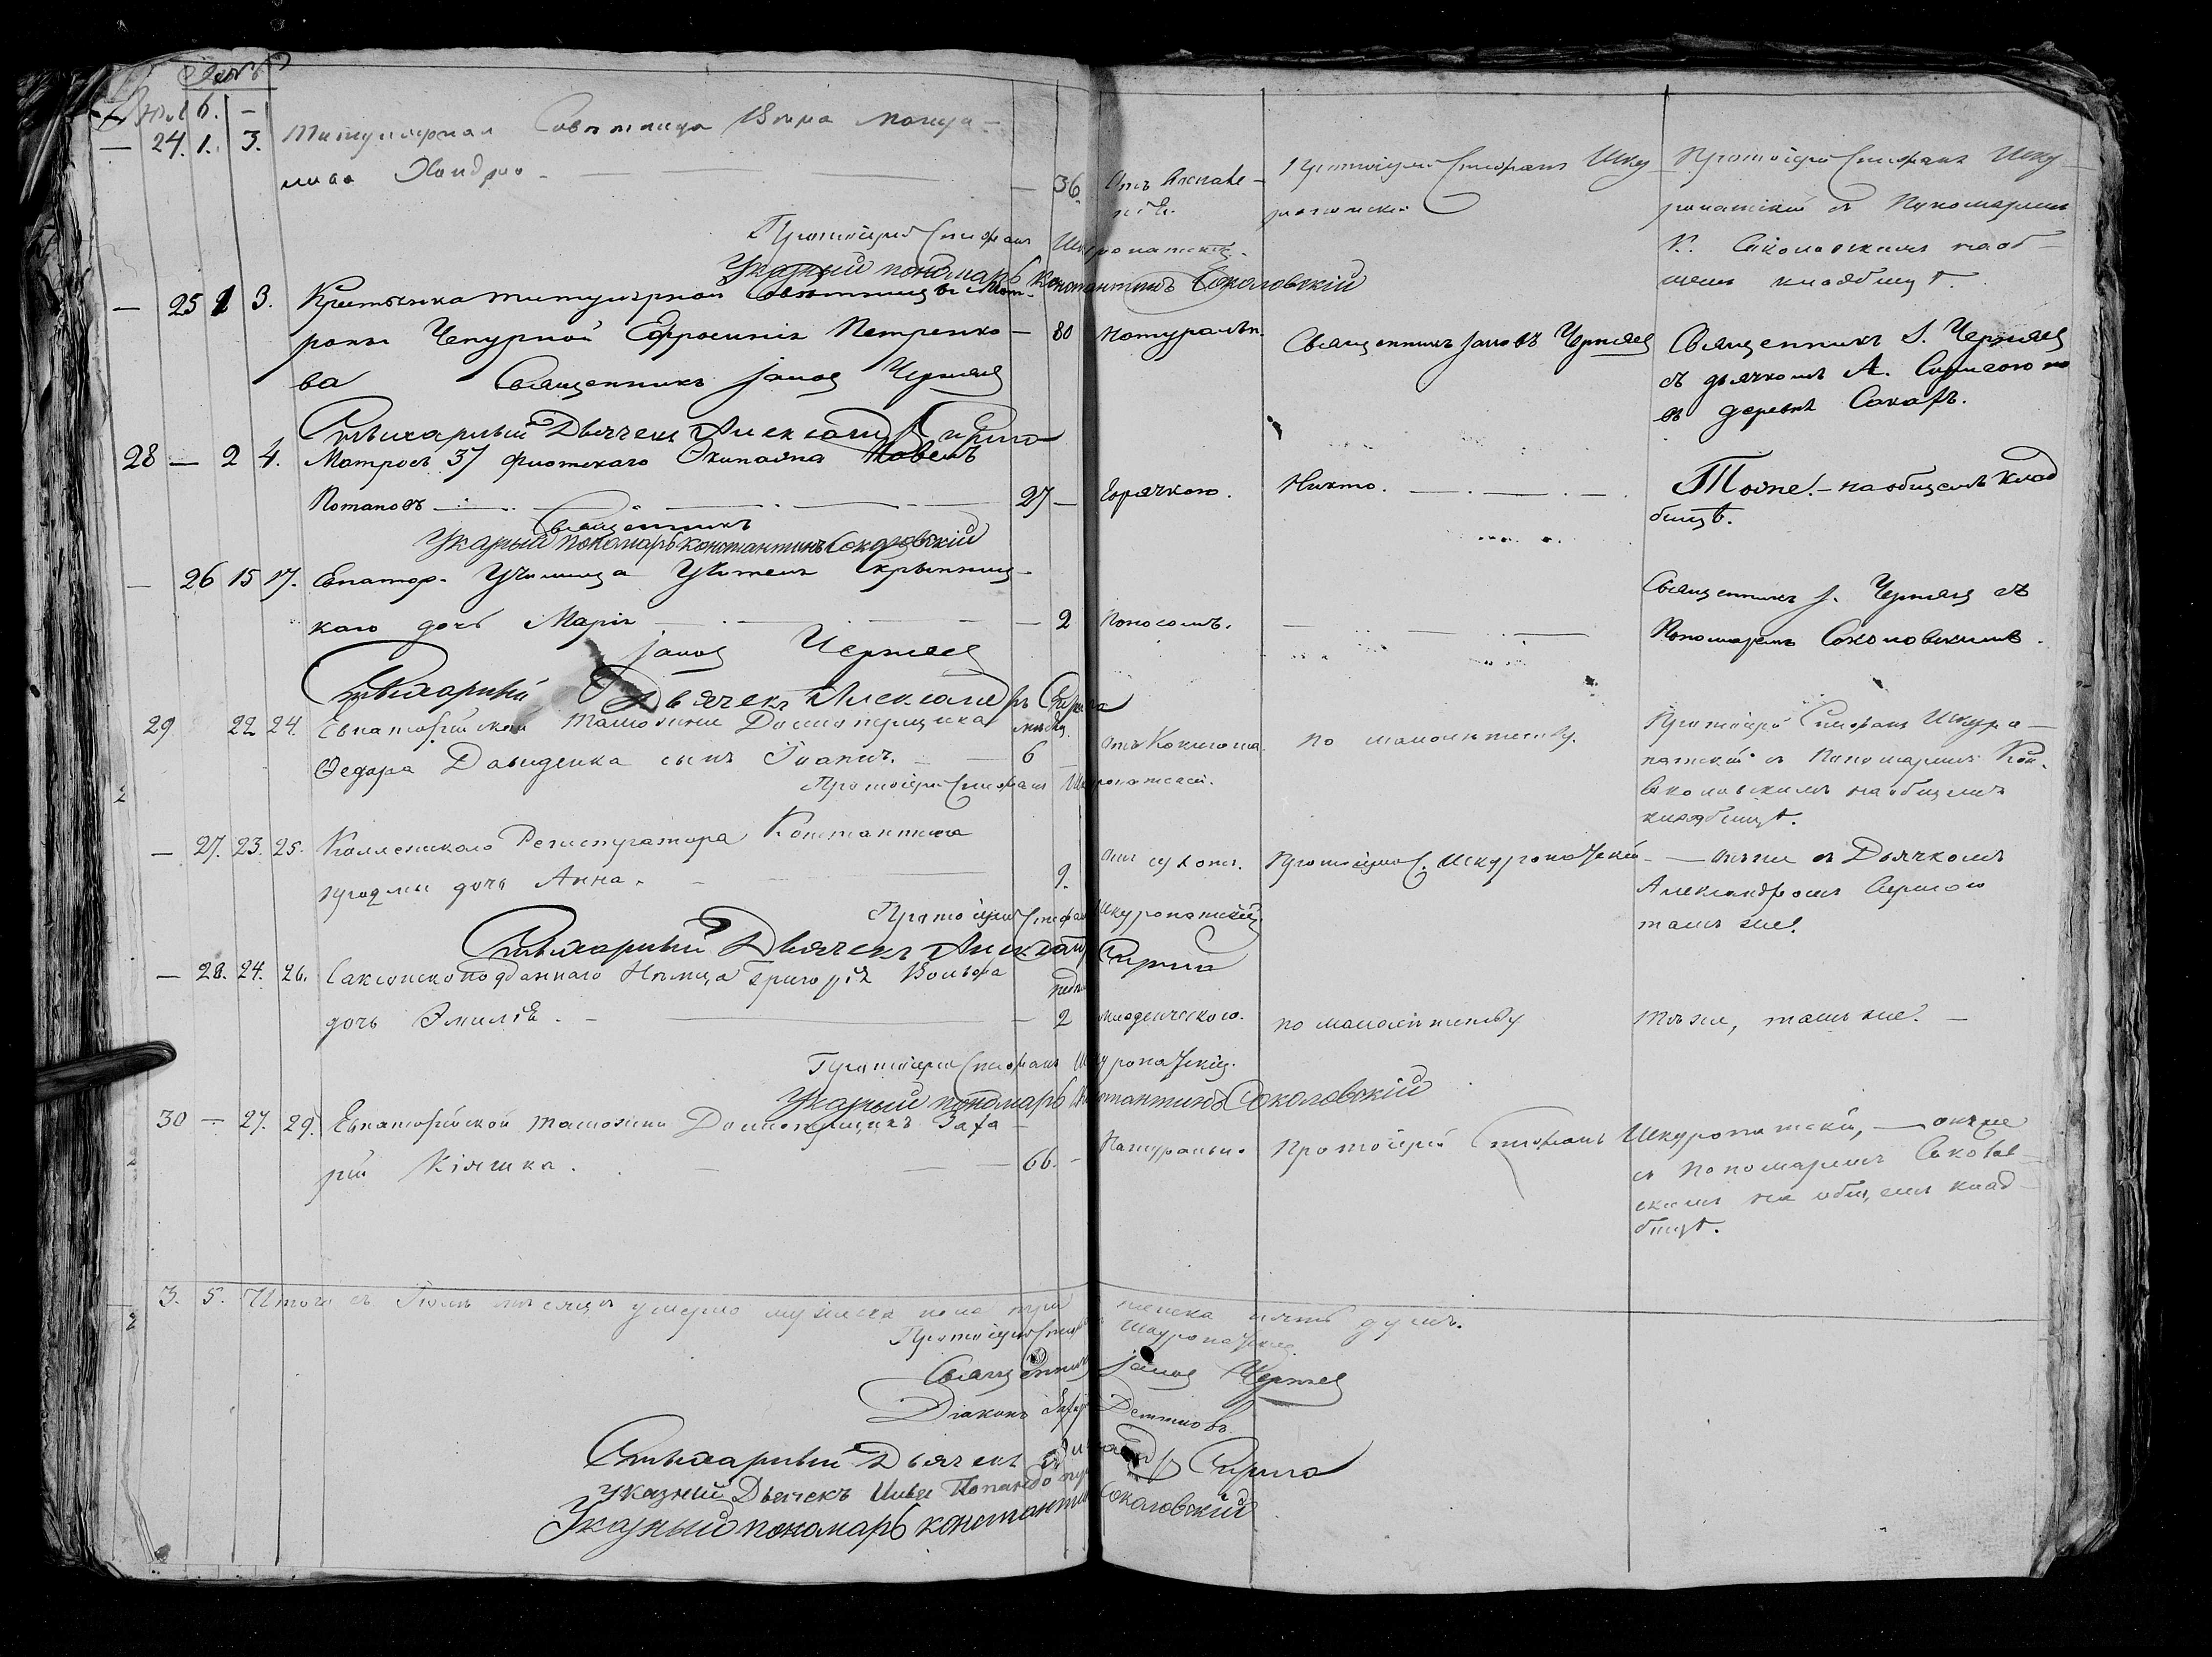 24. 1. 3. Титулярная Совѣтница
36. Протоіерей Стефанъ Шку- Протоіерей Стефанъ Шку-
ропатскій ропатскій съ Пономаремъ
К. Соколовскимъ на об-
щемъ кладбищѣ.
Протоіерей Стефанъ Шкуропатскій.
Указный пономарь Константинъ Соколовскій
— 25 3. Крестьянка титулярной Совѣтницы Мат-
роны Чепурной Ефросинія Петренко- — 80 Натуральн. Священникъ Іаковъ Черняев Священникъ І. Черняев
ва Священникъ Іаков Черняев съ дьячкомъ А. Сиригою
въ деревнѣ Сакавъ.
Стихарный Дьячекъ Александръ Сирига
28 — 2 4. Матросъ 37 флотскаго Экипажа Павелъ
Потаповъ 27 — Горячкою. Никто. — Тоже. — на общемъ клад
бищѣ.
Священникъ
Указный пономарь Константинъ Соколовскій
— 26 15 17. Евпатор. Училища Учителя
каго дочь Марія — 2 Поносомъ. — Священникъ І. Черняев съ
Пономаремъ Соколовскимъ.
Іаков Черняев
Стихарный Дьячекъ Александръ Сирига
29 22 24. Евпаторійской Таможни Досмотрщика
Ѳедора Давиденка сынъ Іоаннъ. — 6 по малолѣтству. Протоіерей Стефанъ Шкуро-
патскій съ Пономаремъ Кон.
Соколовскимъ на общемъ
кладбищѣ.
Протоіерей Стефанъ Шкуропатскій.
— 27. 23. 25. Коллежскаго Регистратора Константина
дочь Анна. — 9. Протоіерей С. Шкуропатскій — Онъ же съ Дьячкомъ
Александромъ Сиригою
тамъ же.
Протоіерей Стефанъ Шкуропатскій
Стихарный Дьячекъ Александръ Сирига
— 28. 24. 26. Саксонскоподданнаго Нѣмца Григорія Вольфа
дочь Эмилія. — 2 младенческого. по малолѣтству Тѣже, тамъ же. —
Протоіерей Стефанъ Шкуропатскій.
Указный пономарь Константинъ Соколовскій
30 — 27. 29. Евпаторійской таможни Досмотрщикъ Заха-
рій Кіяшка. — 66. Натуральн. Протоіерей Стефанъ Шкуропатскій, — онъ же
съ Пономаремъ Соколов-
скимъ на общемъ клад-
бищѣ.
3. 5. Итого въ Іюлѣ мѣсяцѣ умерло мужеска пола три женска пять душъ.
Протоіерей Стефанъ Шкуропатскій
Священникъ Іаков Черняев
Діаконъ
Стихарный Дьячекъ Александръ Сирига
Указный Дьячекъ
Указный пономарь Константинъ Соколовскій